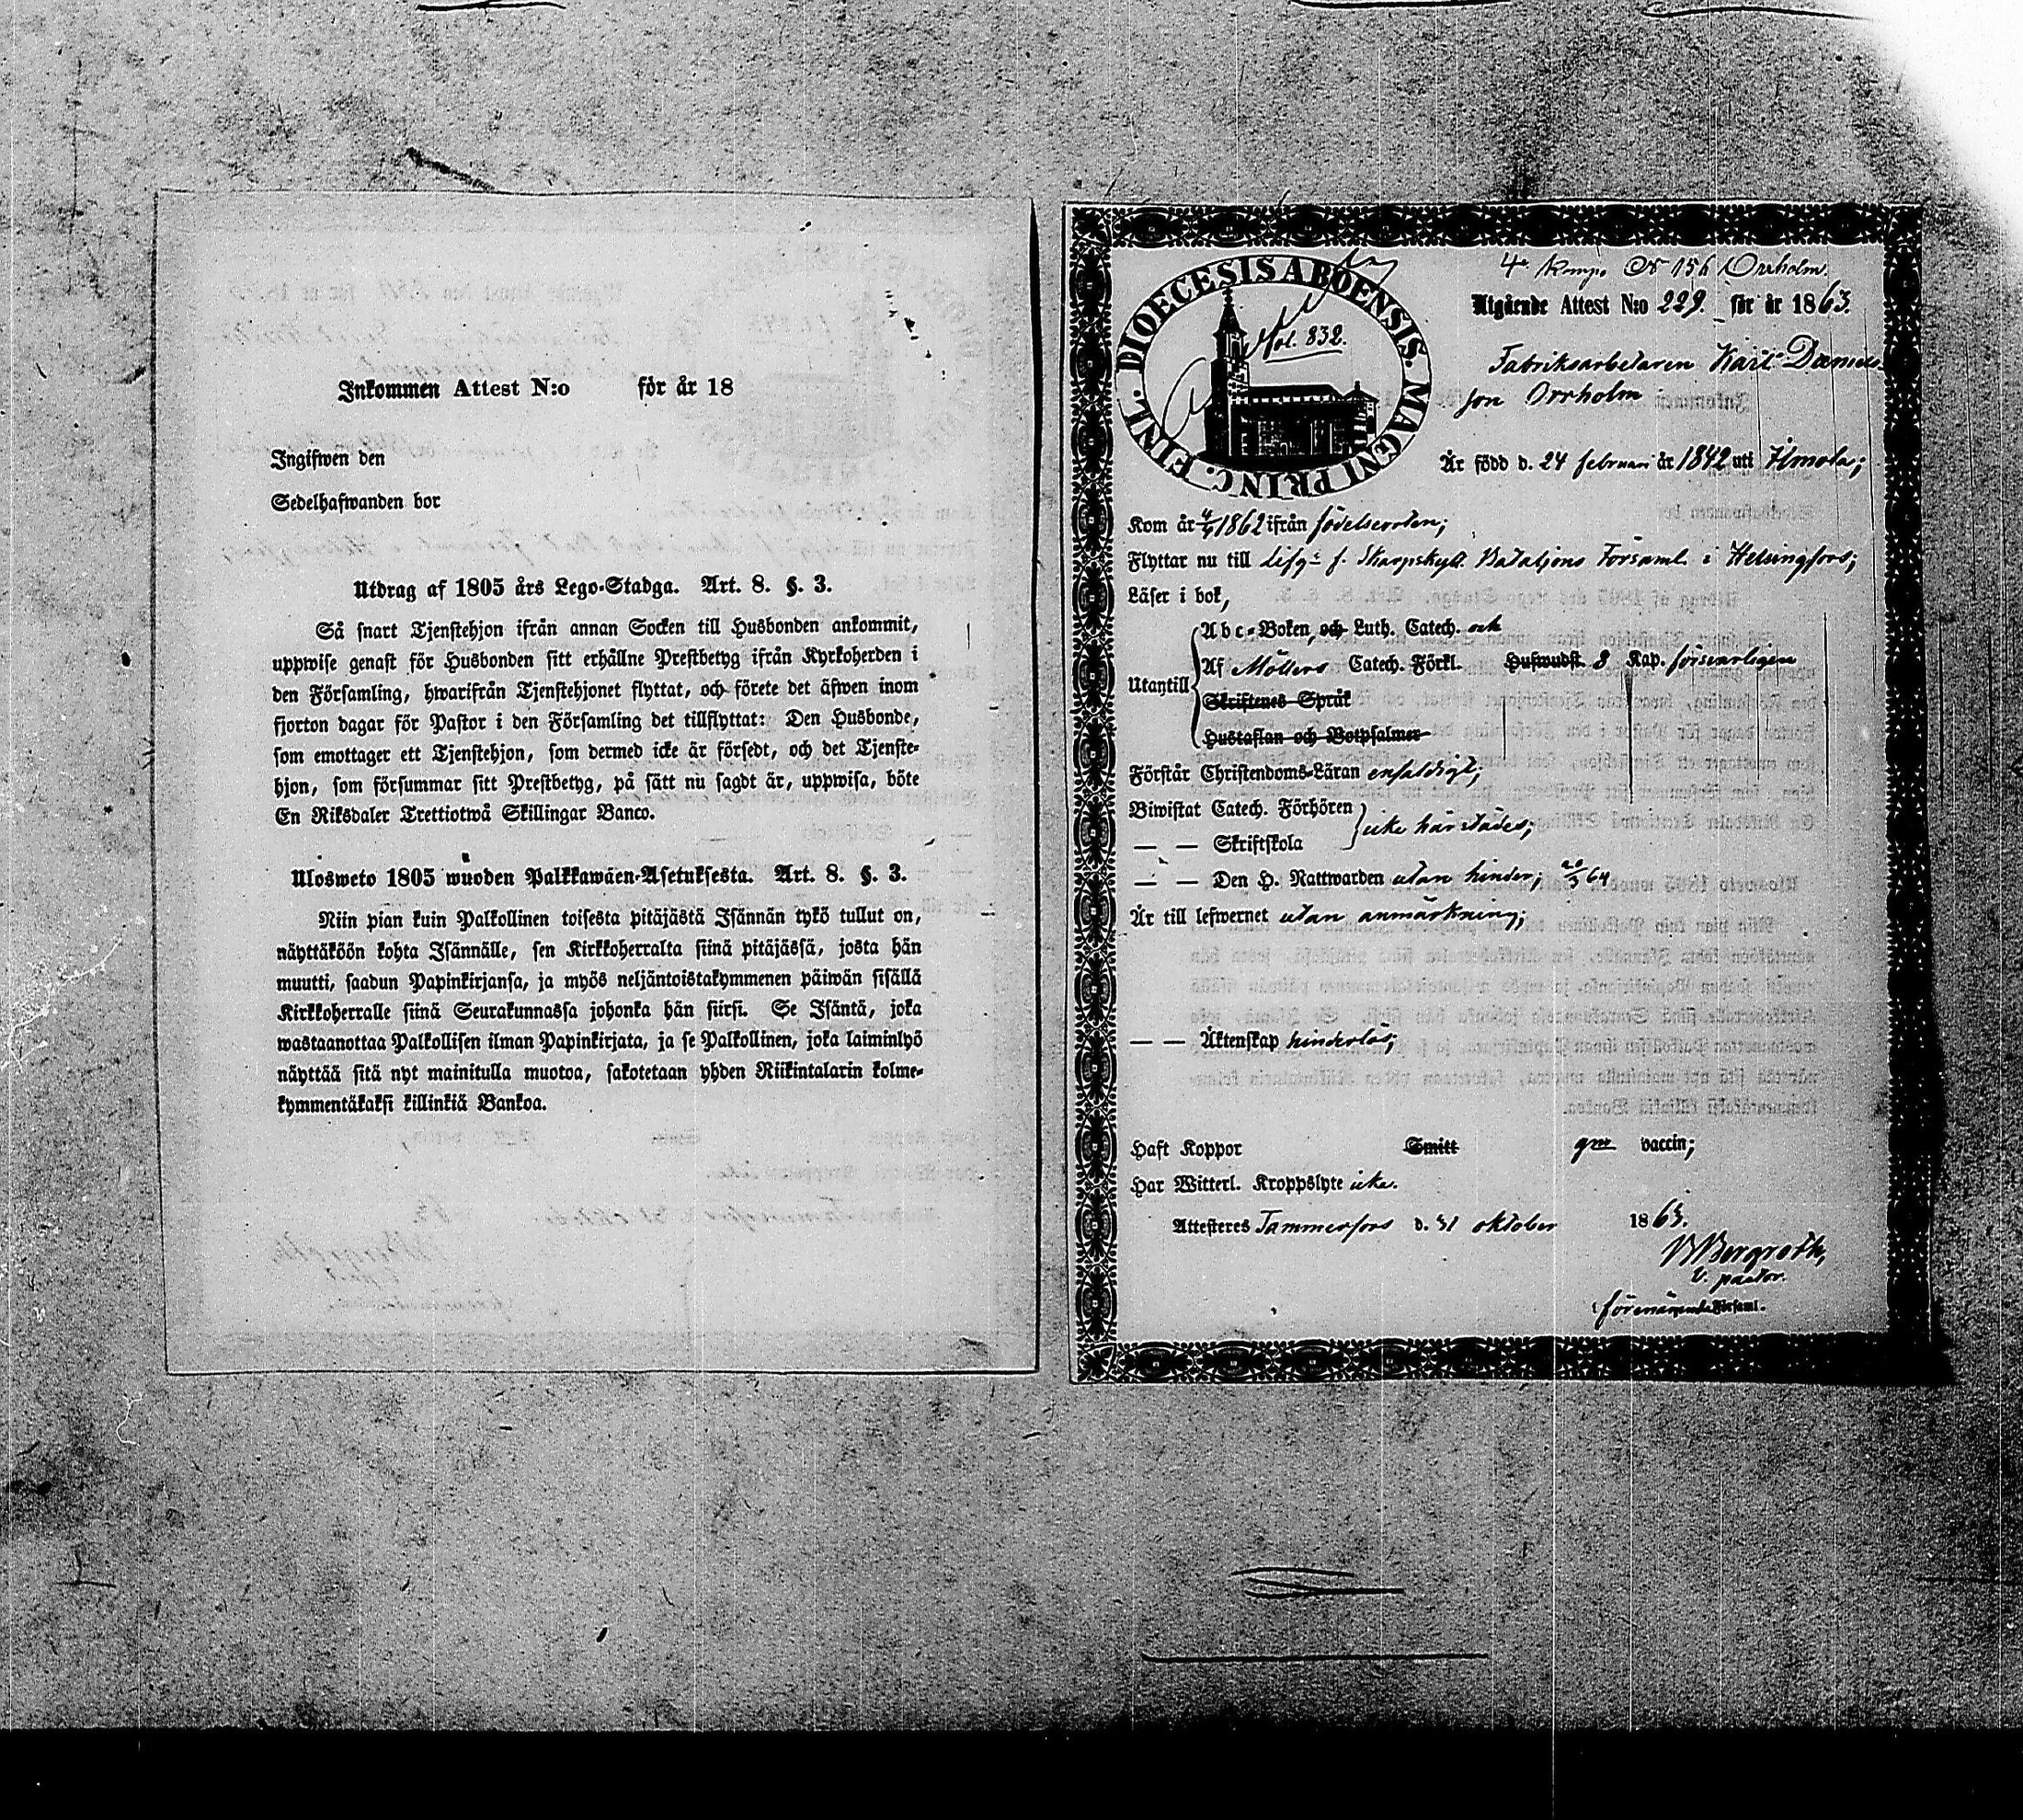 Inkommen Attest N:o för år 18
Ingifwen den
Sedelhafwanden bor
Utdrag af 1805 års Lego-Stadga. Art. 8. §. 3.
Så snart Tjenstehjon ifrån annan Socken till Husbonden ankommit,
uppwise genast för Husbonden sitt erhållne Prestbetyg ifrån Kyrkoherden i
den Församling, hwarifrån Tjenstehjonet flyttat, och förete det äfwen inom
fjorton dagar för Pastor i den Församling det tillflyttat: Den Husbonde,
som emottager ett Tjenstehjon, som dermed icke är försedt, och det Tjenste-
hjon, som försummar sitt Prestbetyg, på sätt nu sagdt är, uppwisa, böte
En Riksdaler Trettiotwå Skillingar Banco.
Ulosweto 1805 wuoden Palkkawäen-Asetuksesta. Art. 8. §. 3.
Niin pian kuin Palkollinen toisesta pitäjästä Isännän tykö tullut on,
näyttäköön kohta Isännälle, sen Kirkkoherralta siinä pitäjässä, josta hän
muutti, saadun Papinkirjansa, ja myös neljäntoistakymmenen päiwän sisällä
Kirkkoherralle siinä Seurakunnassa johonka hän siirsi. Se Isäntä, joka
wastaanottaa Palkollisen ilman Papinkirjata, ja se Palkollinen, joka laiminlyö
näyttää sitä nyt mainitulla muotoa, sakotetaan yhden Riikintalarin kolme-
kymmentäkaksi killinkiä Bankoa.
4 Komp. N 156 Orrholm.
DIOECESIS ABOENSIS. MAGNI PRINC. FINL.
fol. 832.
Utgående Attest N:o 229. för år 1863.
Fabriksarbetaren Karl Daniels
son Orrholm
Är född d. 24 februari år 1842 uti Ilmola;
Kom år 1862 ifrån födelseorten;
Flyttar nu till Lifg. f. Skarpskytt. Bataljons Församl. i Helsingfors;
Läser i bok,
Abc-Boken, och Luth. Catech. och
Utantill Af Möllers Catech. Förkl. Hufwudst. 8 Kap. försvarligen
Skriftenes Språk
Hustaflan och Botpsalmer
Förstår Christendoms-Läran enfaldigt;
Biwistat Catech. Förhören
— — Skriftskola icke härstädes;
— — Den H. Nattwarden utan hinder; 20/3 64
Är till lefwernet utan anmärkning;
— — Äktenskap hinderlös;
Haft Koppor Smitt gm vaccin;
Har Witterl. Kroppslyte icke.
Attesteres Tammerfors d. 31 oktober 1863.
Bergroth,
v. pastor.
i förenämnde Församl.